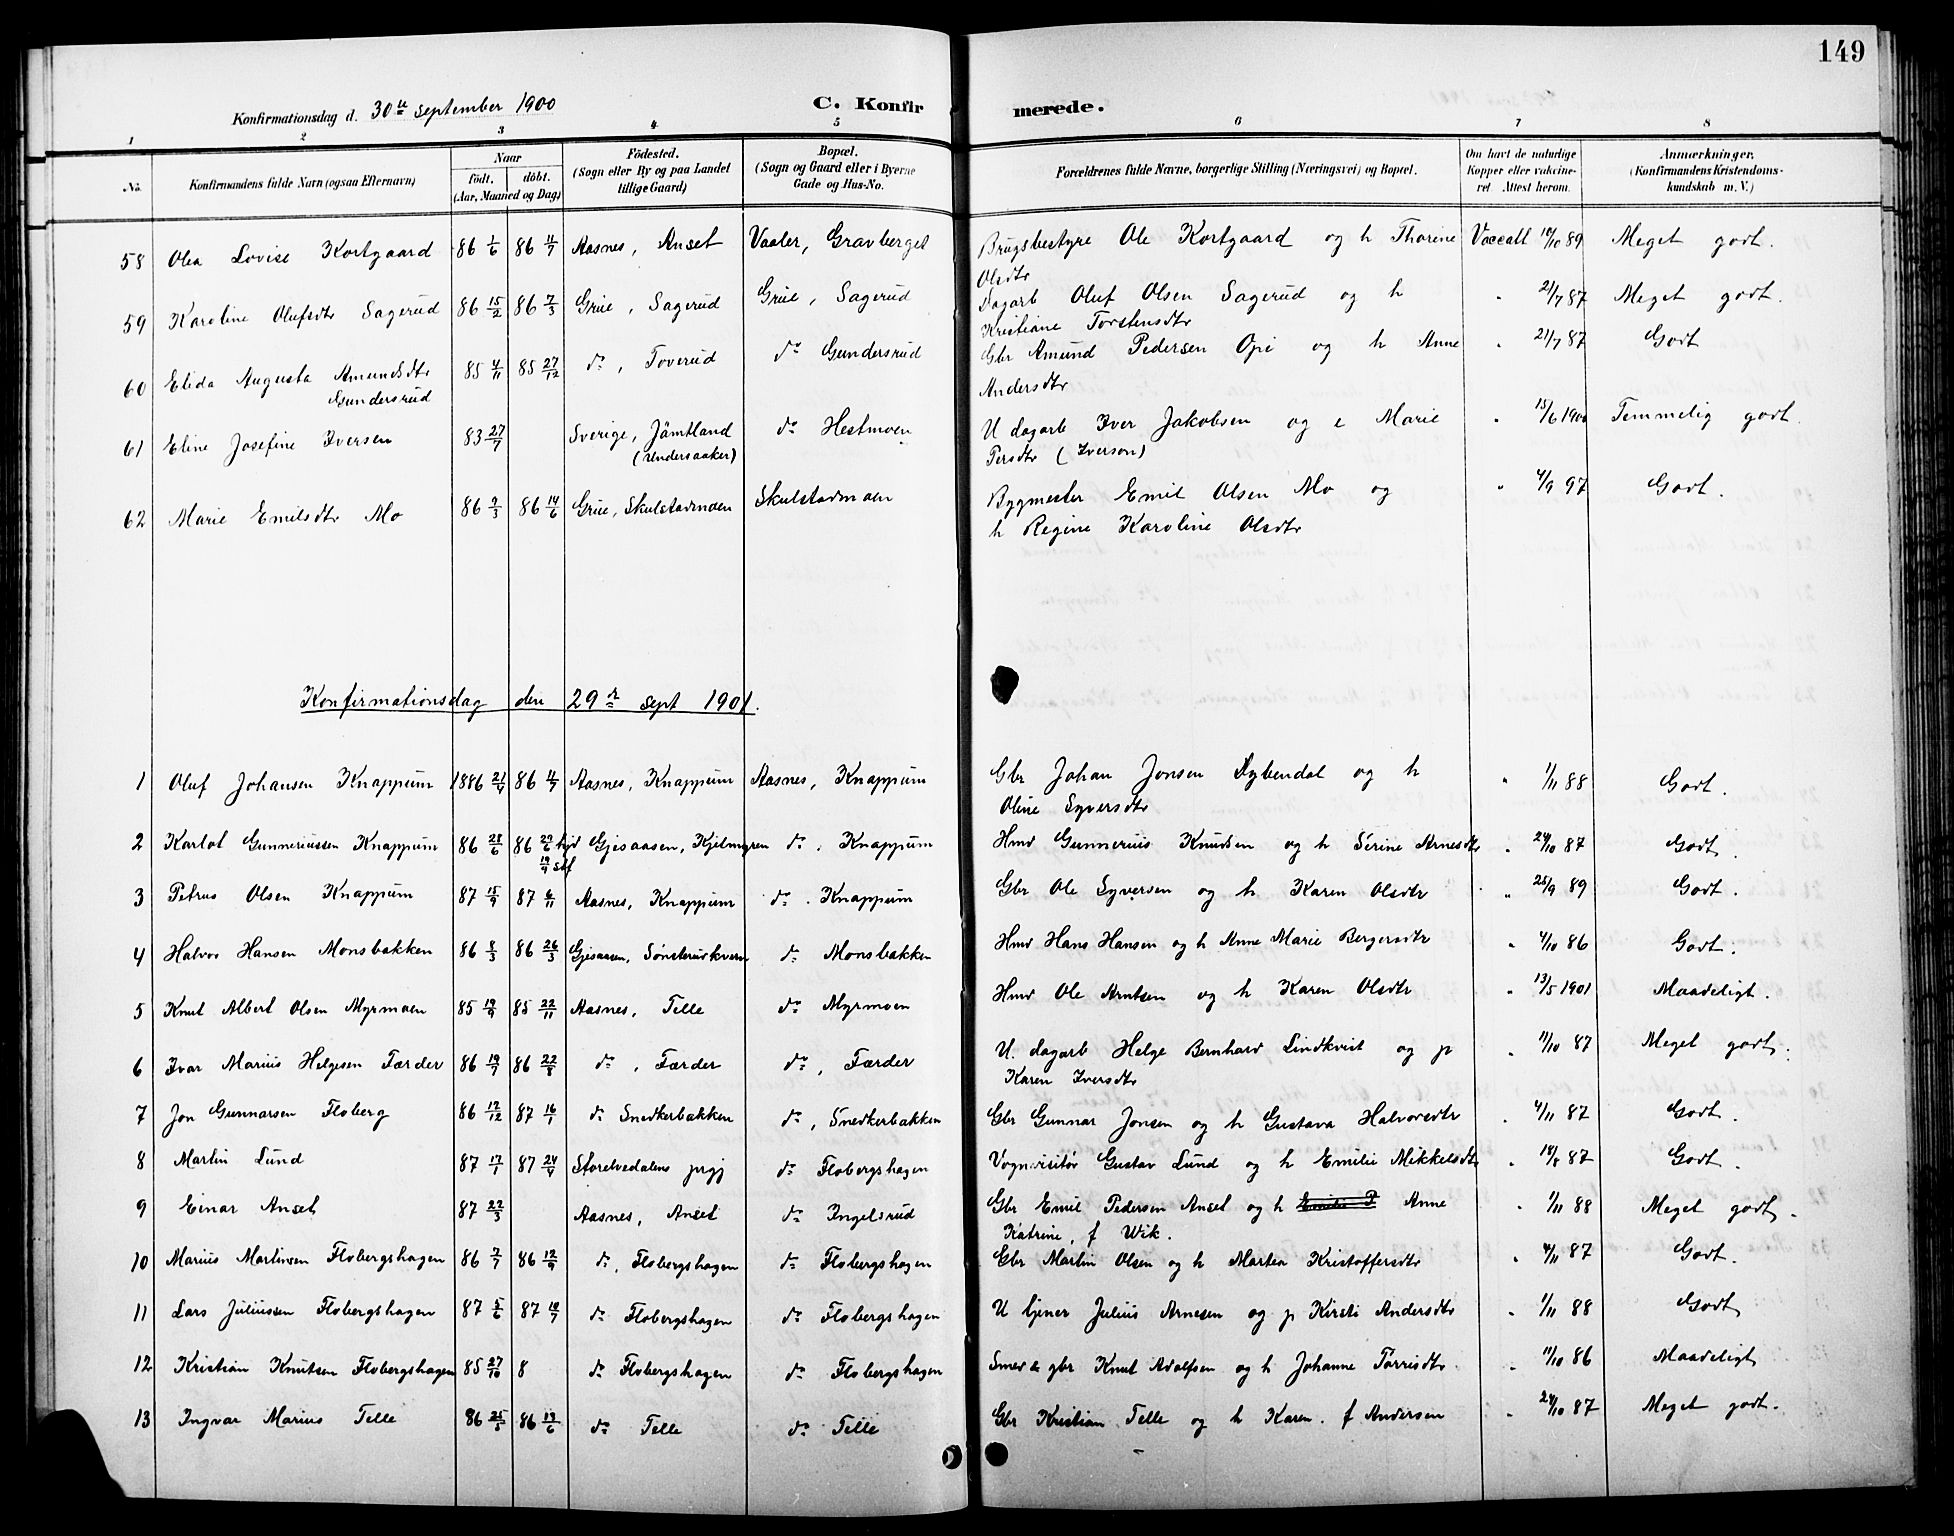 149
Konfirmationsdag d. 30te september 1900 C. Konfirmerede.
1 2 3 4 5 6 7 8
No. Konfirmandens fulde Navn (ogsaa Efternavn) Naar födt. döbt. (Aar, Maaned og Dag) Födested. (Sogn eller By og paa Landet tillige Gaard) Bopæl. (Sogn og Gaard eller i Byerne Gade og Hus-No. Forældrenes fulde Navne, borgerlige Stilling (Næringsvei) og Bopæl. Om havt de naturlige Kopper eller vakcineret. Attest herom. Anmærkninger, (Konfirmandens Kristendomskundskab m. V.)
58 Olea Lovise Kortgaard 86 1/6 86 11/7 Aasnes, Anset Vaaler, Gravberget Brugsbestyre Ole Kortgaard og h Thorine Vaccatt 18/10 89 Meget godt.
Olsdtr
59 Karoline Olufsdtr Sagerud 86 15/2 86 7/3 Grue, Sagerud Grue, Sagerud Dagarb Oluf Olsen Sagerud og h " 21/7 87 Meget godt.
Kristiane Torstensdtr
60 Elida Augusta Amundsdtr 85 4/11 85 27/12 do, Toverud do Gundersrud Gbr Amund Pedersen Opi og h Anne " 21/7 87 Godt
Gundersrud Andersdtr
61 Eline Josefine Iversen 83 27/7 Sverige, Jämtland do Hestmoen U dagarb Iver Jakobsen og e Marie " 15/6 1900 Temmelig godt.
(Undersaaker) Persdtr (Iverson)
62 Marie Emilsdtr Mo 86 2/3 86 14/6 Grue, Skulstadmoen Skulstadmoen Bygmester Emil Olsen Mo og " 4/9 97 Godt.
h Regine Karoline Olsdtr
Konfirmationsdag den 29de sept 1901.
1 Oluf Johansen Knappum 1886 21/4 86 4/7 Aasnes, Knappum Aasnes, Knappum Gbr Johan Jonsen Dybendal og h " 1/11 88 Godt.
Oline Syversdtr
2 Karlot Gunneriussen Knappum 86 28/6 86 29/6 hjd Gjesaasen, Kjelmyren do. Knappum Hmd Gunnerius Knudsen og h Serine Arnesdtr " 24/10 87 Godt.
19/9 stf
3 Petrus Olsen Knappum 87 15/9 87 6/11 Aasnes, Knappum do. Knappum Gbr Ole Syversen og h Karen Olsdtr " 25/9 89 Godt.
4 Halvor Hansen Monsbakken 86 8/3 86 26/3 Gjesaasen, Sønsterudkvern do Monsbakken Hmd Hans Hansen og h Anne Marie Bergersdtr " 4/10 86 Godt.
5 Knut Albert Olsen Myrmoen 85 19/9 85 22/11 Aasnes, Telle do Myrmoen Hmd Ole Arntsen og h Karen Olsdtr " 13/5 1901 Maadeligt.
6 Ivar Marius Helgesen Færder 86 19/7 86 22/8 do, Færder do, Færder U. dagarb Helge Bernhard Lindkvist og p " 11/10 87 Meget godt.
Karen Iversdtr
7 Jon Gunnarsen Floberg 86 17/12 87 16/1 do Snedkerbakken do, Snedkerbakken Gbr Gunnar Jonsen og h Gustava Halvorsdtr " 4/11 87 Godt.
8 Martin Lund 87 17/1 87 24/4 Storelvedalens prgj do Flobergshagen Vognvisitør Gustav Lund og h Emilie Mikkelsdtr " 18/8 87 Godt.
9 Einar Anset 87 22/3 Aasnes, Anset do Ingelsrud Gbr Emil Pedersen Anset og h Emilie P Anne " 1/11 88 Meget godt.
Katrine, f Wik.
10 Marius Martinsen Flobergshagen 86 7/7 86 12/9 do, Flobergshagen do Flobergshagen Gbr Martin Olsen og h Martea Kristoffersdtr " 4/11 87 Godt.
11 Lars Juliussen Flobergshagen 87 5/6 87 10/7 do Flobergshagen do Flobergshagen U tjener Julius Arnesen og p Kirsti Andersdtr " 1/11 88 Godt
12 Kristian Knutsen Flobergshagen 85 27/10 8 do Flobergshagen do Flobergshagen Smed & gbr Knut Adolfsen og h Johanne Tørrisdtr " 11/10 86 Maadeligt
13 Ingvar Marius Telle 86 25/5 86 13/6 do Telle do Telle Gbr Kristian Telle og h Karen. f Andersen " 24/10 87 Meget godt.